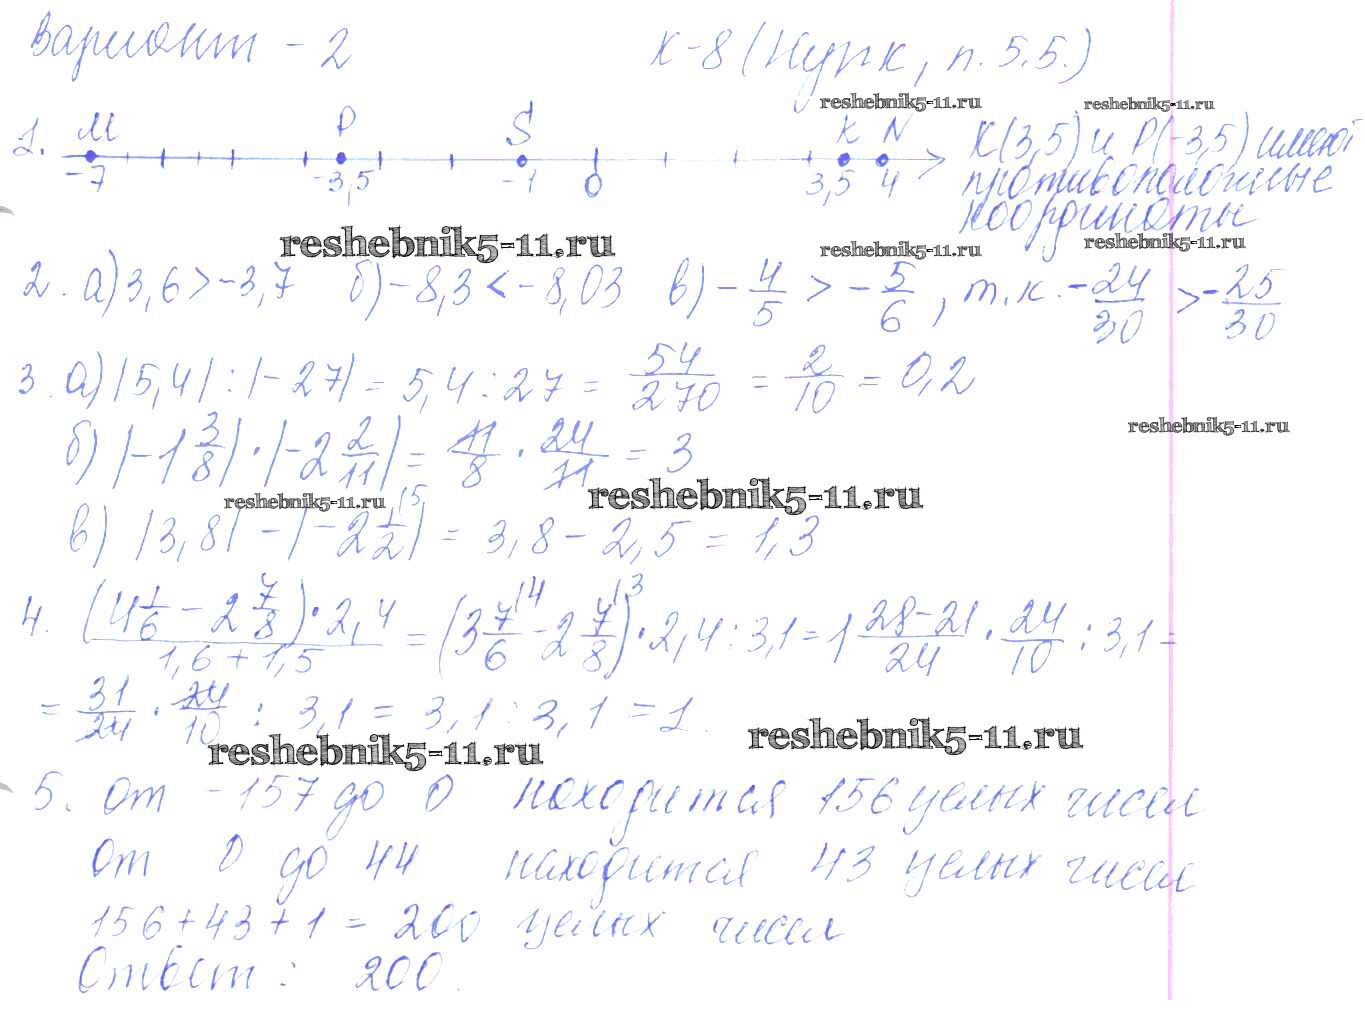 Вариант - 2 К-8 (Нурк, п. 5.5.)
reshebnik5-11.ru reshebnik5-11.ru
1. M P S K N К(3,5) и Р(-3,5) имеют
-7 -3,5 -1 0 3,5 4 противоположные
координаты
reshebnik5-11.ru reshebnik5-11.ru reshebnik5-11.ru
2. а) 3,6 > -3,7 б) -8,3 < -8,03 в) - 4/5 > - 5/6, т.к. - 24/30 > - 25/30
3. а) |5,4| : |-27| = 5,4 : 27 = 54/270 = 2/10 = 0,2
reshebnik5-11.ru
б) |-1 3/8| · |-2 2/11| = 11/8 · 24/11 = 3
reshebnik5-11.ru reshebnik5-11.ru
в) |3,8| - |-2 1/2 |5| = 3,8 - 2,5 = 1,3
4. (4 1/6 - 2 7/8) · 2,4 / 1,6 + 1,5 = (3 7/6 |4 - 2 7/8 |3) · 2,4 : 3,1 = 1 28-21/24 · 24/10 : 3,1 =
= 31/24 · 24/10 : 3,1 = 3,1 : 3,1 = 1.
reshebnik5-11.ru reshebnik5-11.ru
5. От -157 до 0 находится 156 целых чисел
От 0 до 44 находится 43 целых чисел
156 + 43 + 1 = 200 целых чисел
Ответ : 200.